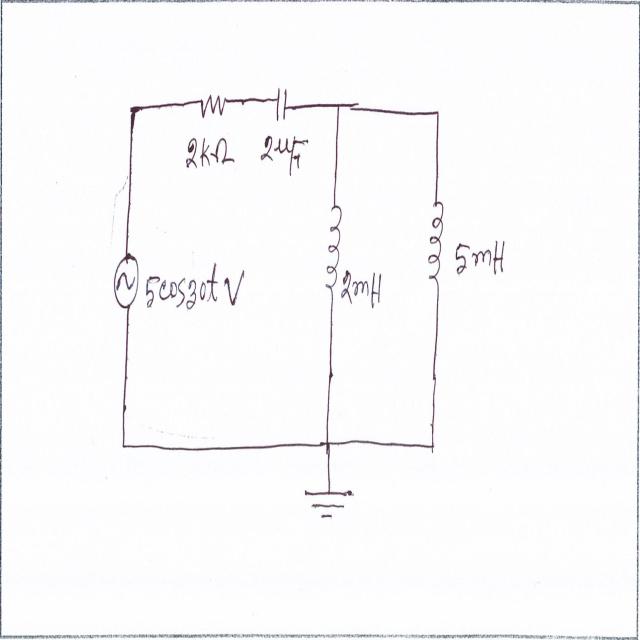 2kΩ 2μF
5cos30t V
2mH
5mH